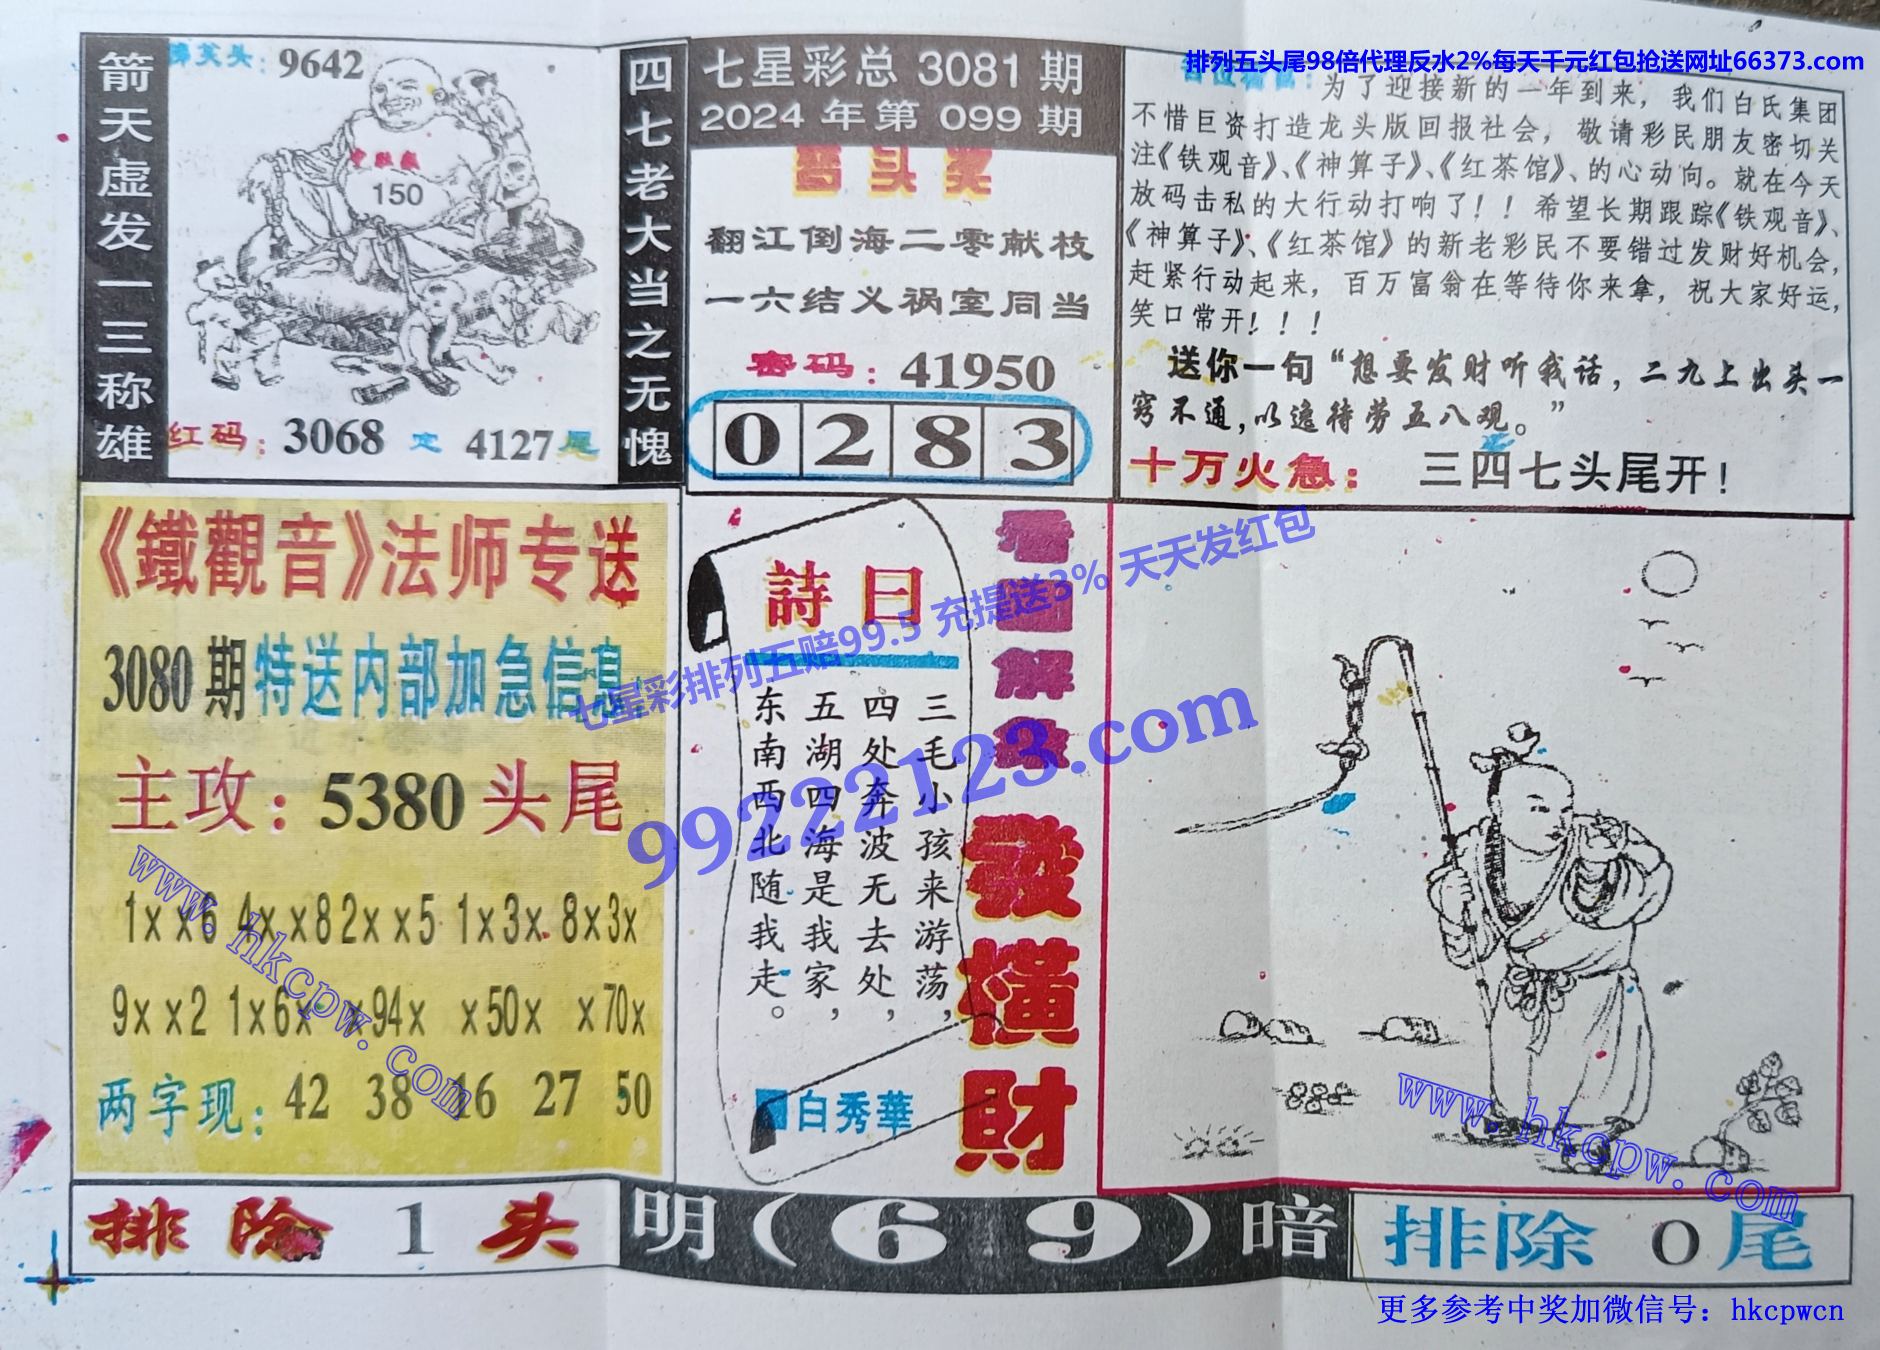 排列五头尾98倍代理反水2%每天千元红包抢送网址66373.com
箭天虚发一三称雄
9642
中肚数
150
红码：3068 定 4127尾
四七老大当之无愧
七星彩总 3081 期
2024 年第 099 期
翻江倒海二零献枝
一六结义祸室同当
密码：41950
0 2 8 3
为了迎接新的一年到来，我们白氏集团
不惜巨资打造龙头版回报社会，敬请彩民朋友密切关
注《铁观音》、《神算子》、《红茶馆》、的心动向。就在今天
放码击私的大行动打响了！！希望长期跟踪《铁观音》、
《神算子》、《红茶馆》的新老彩民不要错过发财好机会，
赶紧行动起来，百万富翁在等待你来拿，祝大家好运，
笑口常开！！！
送你一句“想要发财听我话，二九上出头一
窍不通，以逸待劳五八观。”
十万火急：三四七头尾开！
《鐵觀音》法师专送
3080期特送内部加急信息
主攻：5380头尾
1xx6 4xx8 2xx5 1x3x 8x3x
9xx2 1x6x x94x x50x x70x
两字现：42 38 16 27 50
詩曰
三毛小孩来游荡，
四处奔波无去处，
五湖四海是我家，
东南西北随我走。
白秀華
發橫財
七星彩排列五赔99.5 充提送3% 天天发红包
99222123.com
www.hkcpw.com
www.hkcpw.com
排除 1 头
明(69)暗
排除 0 尾
更多参考中奖加微信号：hkcpwcn